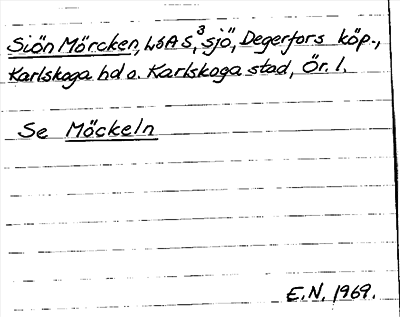 Siön Mörcken, LSA S,³ sjö, Degerfors köp.,
Karlskoga hd o. Karlskoga stad, Ör. l.
Se Möckeln
E.N. 1969.